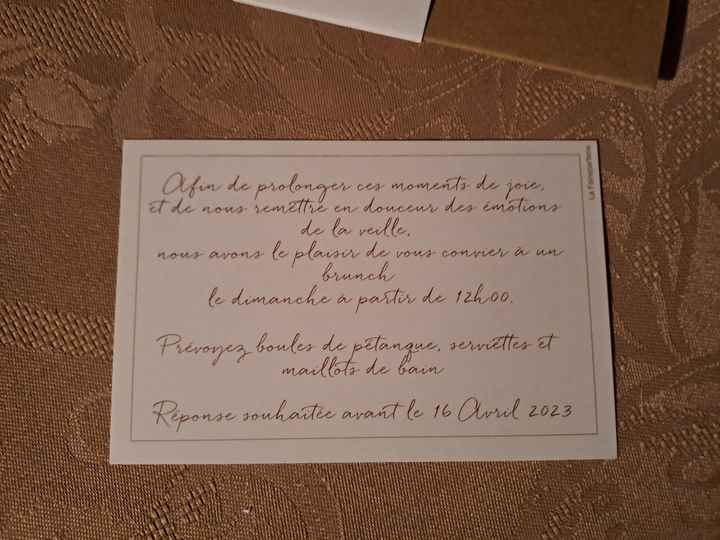 Afin de prolonger ces moments de joie,
et de nous remettre en douceur des émotions
de la veille,
nous avons le plaisir de vous convier à un
brunch
le dimanche à partir de 12h00.
Prévoyez boules de pétanque, serviettes et
maillots de bain
Réponse souhaitée avant le 16 Avril 2023